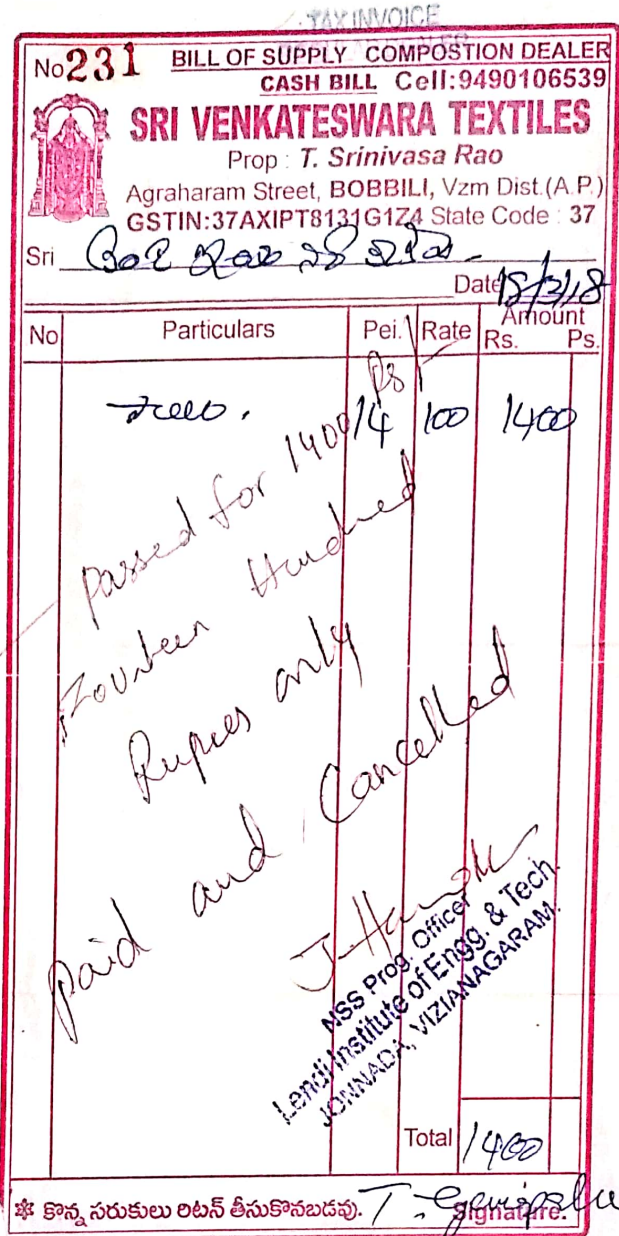 TAX INVOICE
No 231 BILL OF SUPPLY COMPOSTION DEALER
CASH BILL Cell:9490106539
SRI VENKATESWARA TEXTILES
Prop : T. Srinivasa Rao
Agraharam Street, BOBBILI, Vzm Dist.(A.P.)
GSTIN:37AXIPT8131G1Z4 State Code : 37
Sri
Date
No Particulars Pei. Rate Amount
Rs. Ps.
14 100 1400
passed for 1400 Rs/-
Fourteen Hundred
Rupees only
Paid and Cancelled
NSS Prog. Officer
Lendi Institute of Engg. & Tech.
JONNADA, VIZIANAGARAM.
Total 1400
❉ కొన్న సరుకులు రిటన్ తీసుకొనబడవు.
Signature.